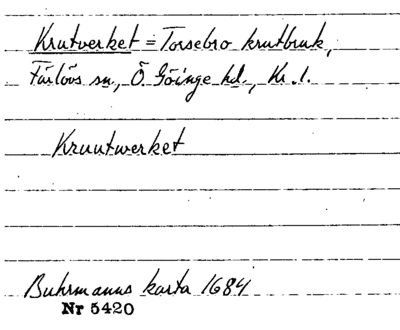 Krutverket = Torsebro krutbruk,
Färlövs sn., Ö. Göinge hd., Kr. l.
Kruutwerket
Buhrmanns karta 1684
Nr 5420